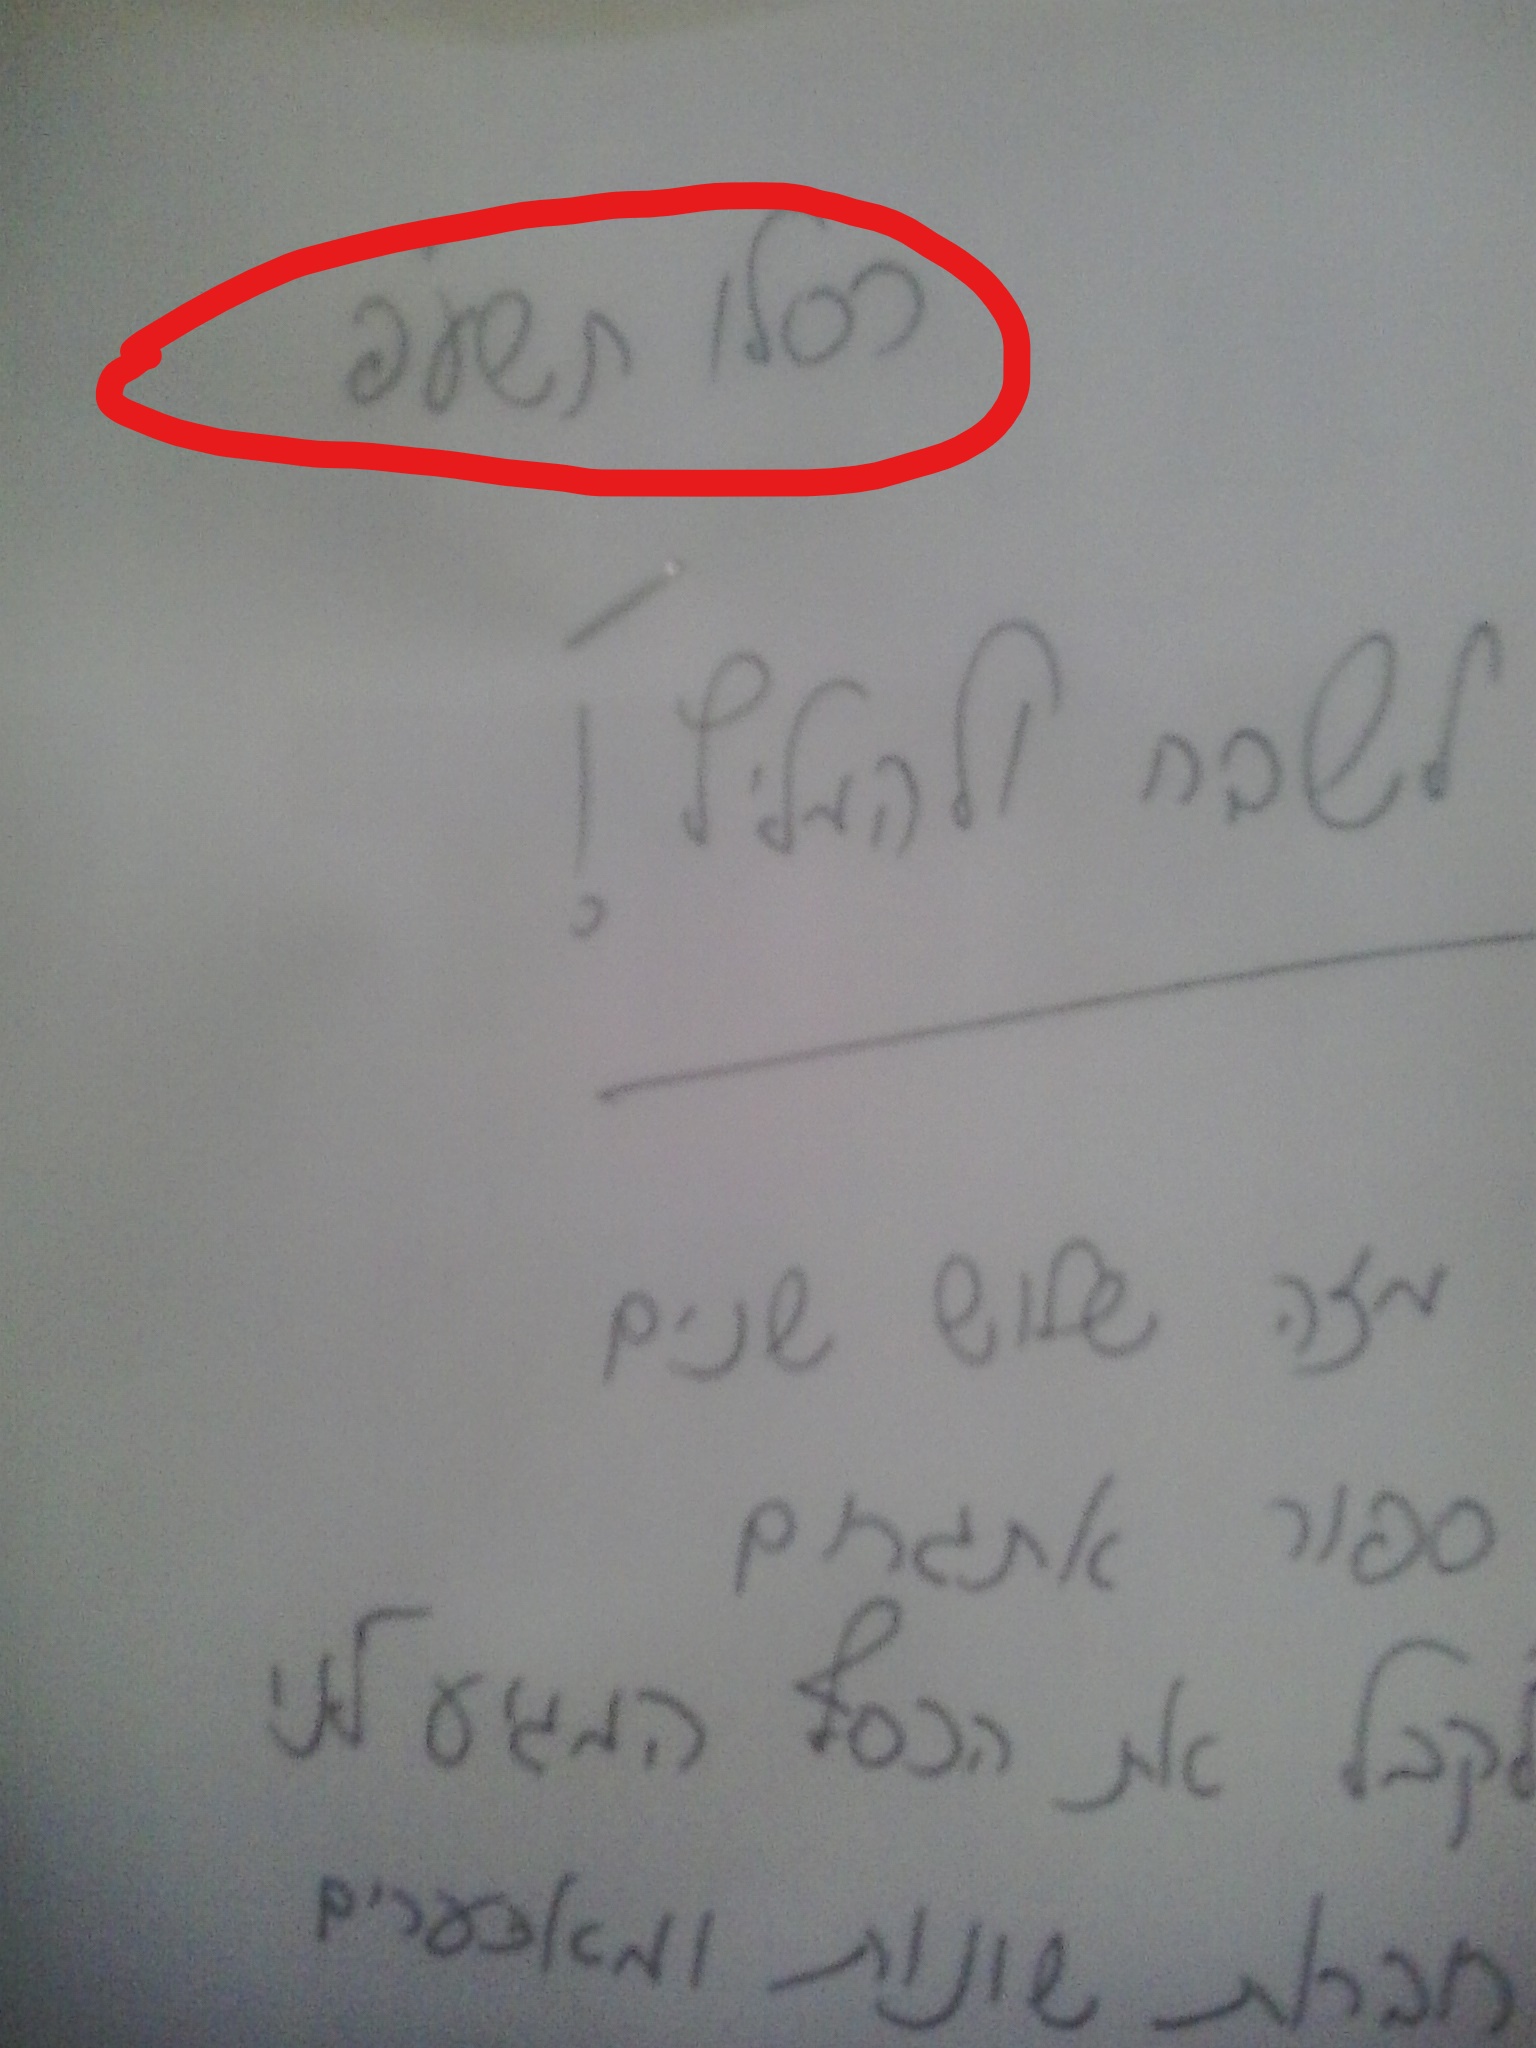 כסלו תשע"פ
לשבח ולהמליץ!
מזה שלוש שנים
ספור אתגרים
לקבל את הכסף המגיע לי
חברות שונות ומאכערים